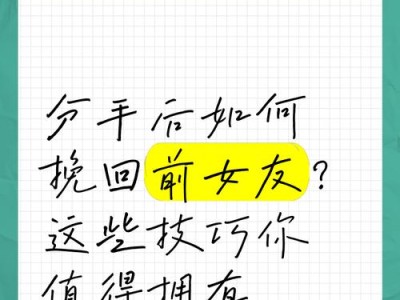 分手后如何
挽回前女友?
这些技巧你
值得拥有